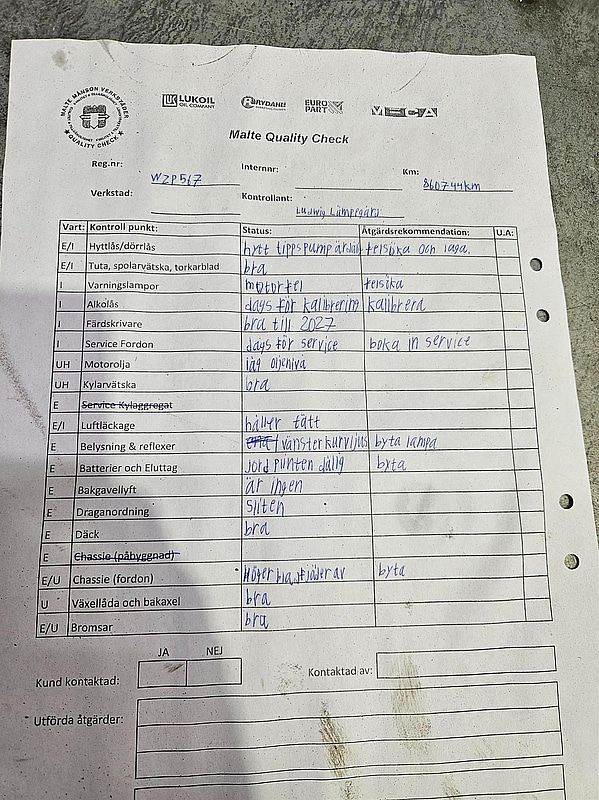 MALTE MÅNSON VERKSTÄDER
QUALITY CHECK
LUKOIL
OIL COMPANY
RYDAHLS
EURO PART
MECA
Malte Quality Check
Reg.nr: WZP567 Internnr: Km: 860744km
Verkstad: Kontrollant: Ludwig
Vart: Kontroll punkt: Status: Åtgärdsrekommendation: U.A:
E/I Hyttlås/dörrlås hytt tippspump felsöka och laga.
E/I Tuta, spolarvätska, torkarblad bra
I Varningslampor motorfel felsöka
I Alkolås dags för kalibrering kalibrera
I Färdskrivare bra till 2027
I Service Fordon dags för service boka in service
UH Motorolja låg oljenivå
UH Kylarvätska bra
E Service Kylaggregat
E/I Luftläckage håller tätt
E Belysning & reflexer vänster kurvljus byta lampa
E Batterier och Eluttag jord punten dålig byta
E Bakgavellyft är ingen
E Draganordning sliten
E Däck bra
E Chassie (påbyggnad)
E/U Chassie (fordon) Höger av byta
U Växellåda och bakaxel bra
E/U Bromsar bra
JA NEJ
Kund kontaktad: Kontaktad av:
Utförda åtgärder: